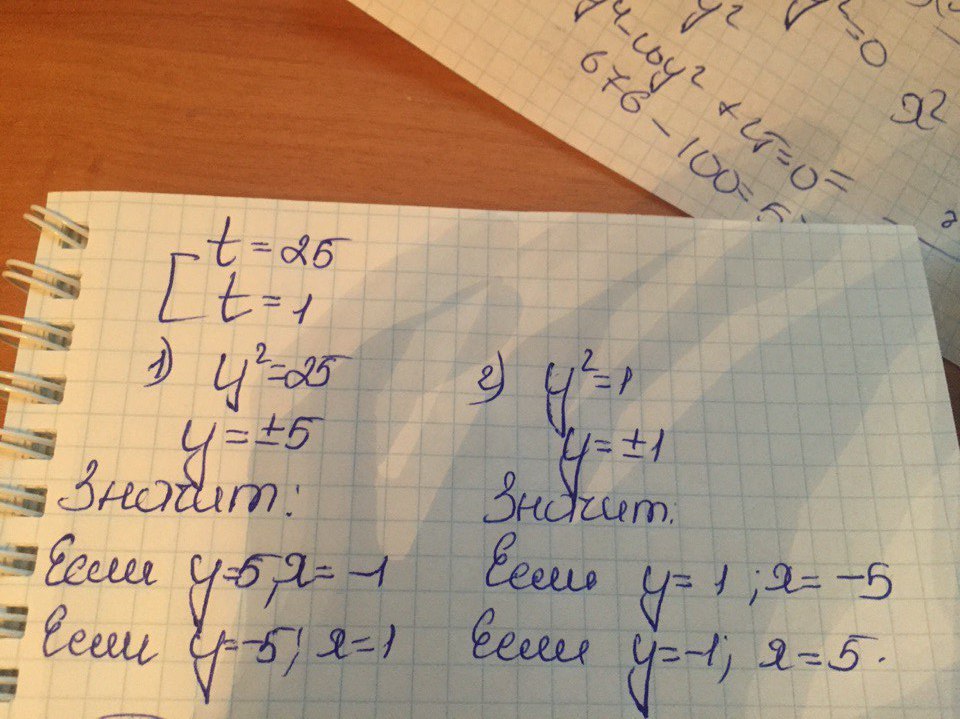 y² y² =0
x²
+25=0=
676-100=5
[ t=25
t=1
1) y²=25
y=±5
Значит:
Если y=5, x=-1
Если y=-5; x=1
2) y²=1
y=±1
Значит:
Если y=1; x=-5
Если y=-1; x=5.